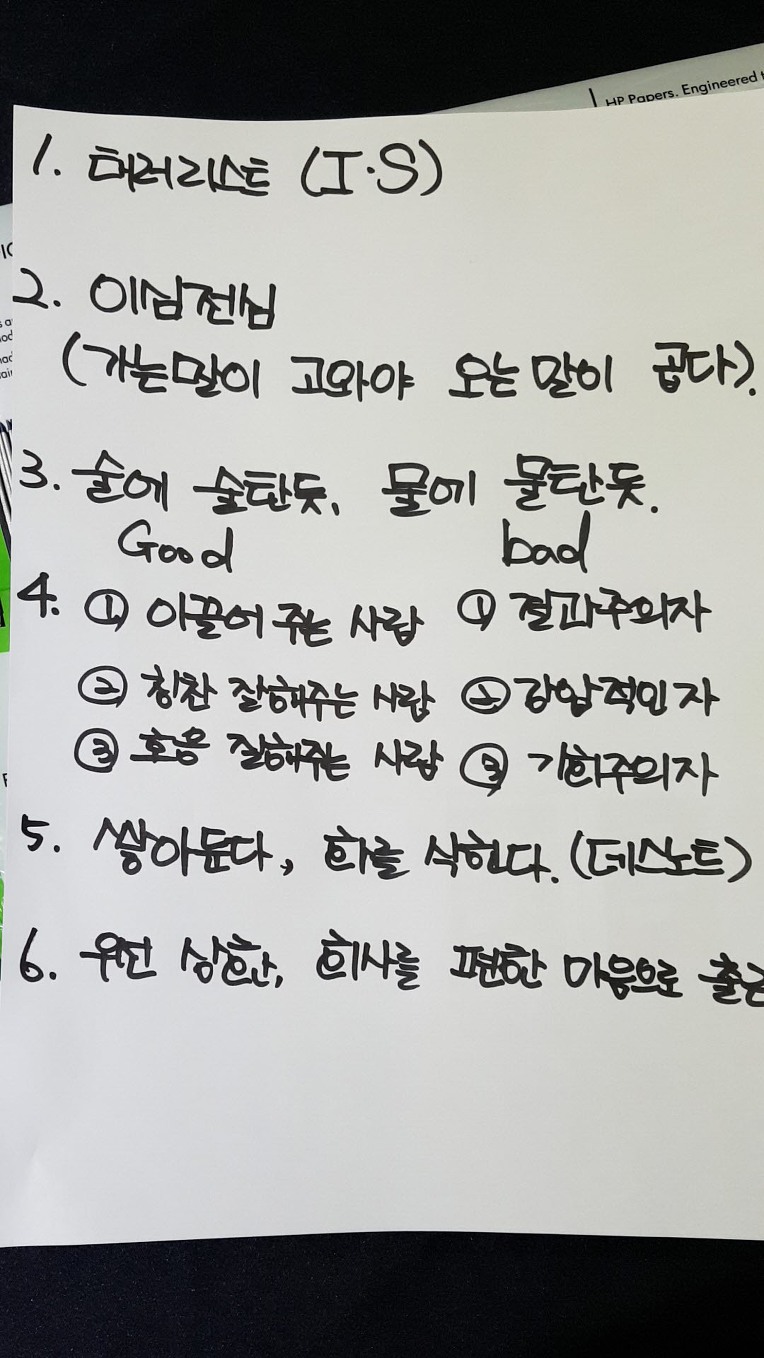 HP Papers. Engineered t
1. 테러리스트 (I·S)
2. 이심전심
(가는말이 고와야 오는 말이 곱다).
3. 술에 술탄듯, 물에 물탄듯.
Good bad
4. ① 이끌어 주는 사람 ① 결과주의자
② 칭찬 잘해주는 사람 ② 강압적인 자
③ 호응 잘해주는 사람 ③ 기회주의자
5. 쌓아둔다, 화를 삭힌다. (데스노트)
6. 우선 상환, 회사를 편한 마음으로